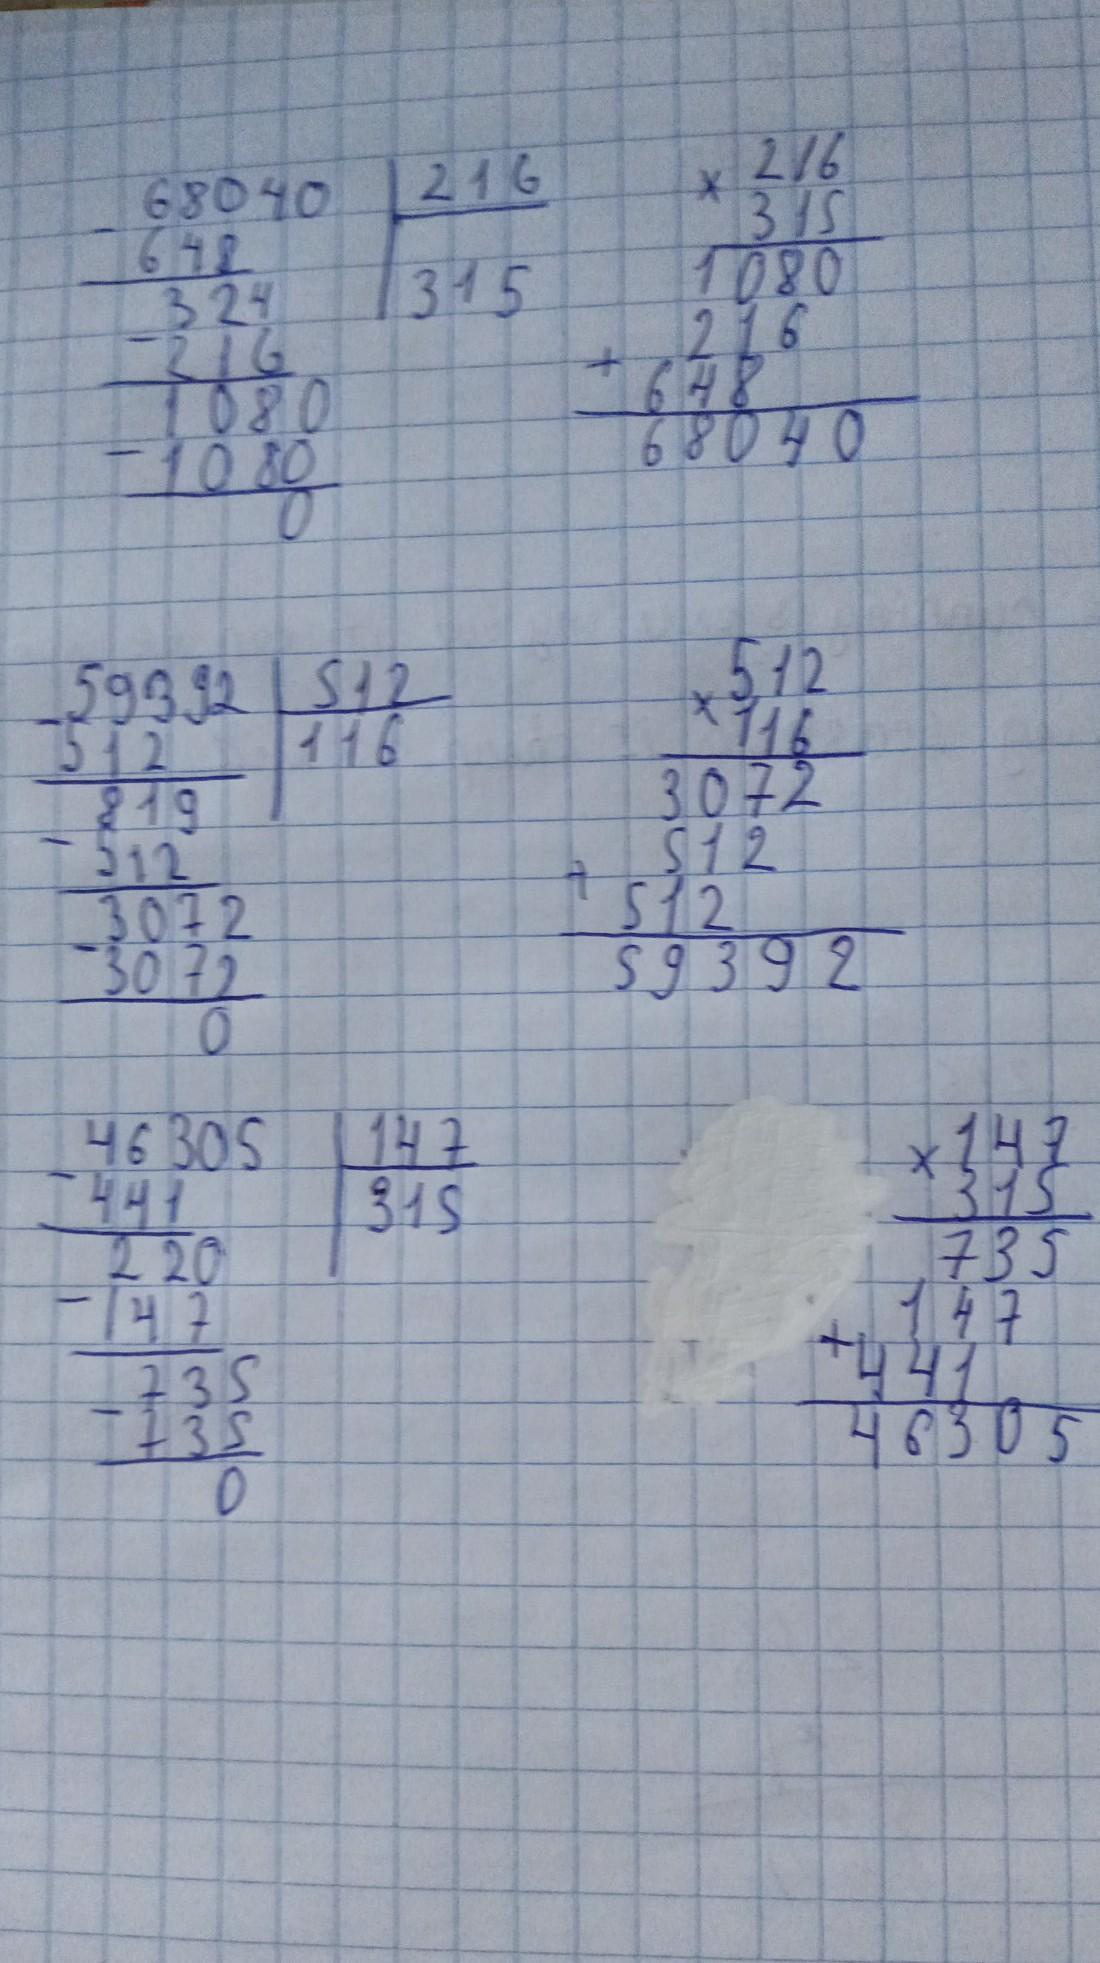 68040 | 216
- 648 | 315
324
- 216
1080
- 1080
0
× 216
315
1080
216
+ 648
68040
- 59392 | 512
512 | 116
819
- 512
3072
- 3072
0
512
× 116
3072
512
+ 512
59392
46305 | 147
- 441 | 315
220
- 147
735
- 735
0
× 147
315
735
147
+ 441
46305